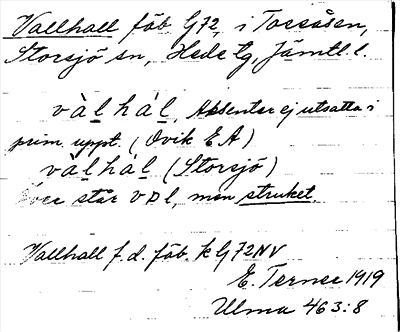 Vallhall fäb. G72, i Tossåsen,
Storsjö sn, Hede tg, Jämtl. l.
vàlhàl, Accenter ej utsatta i
prim. uppt. (Ovik E A)
vàlhàl (Storsjö)
Över står v l, men struket
Vallhall f.d. fäb. k G72NV
E. Terner 1919
Ulma 463:8